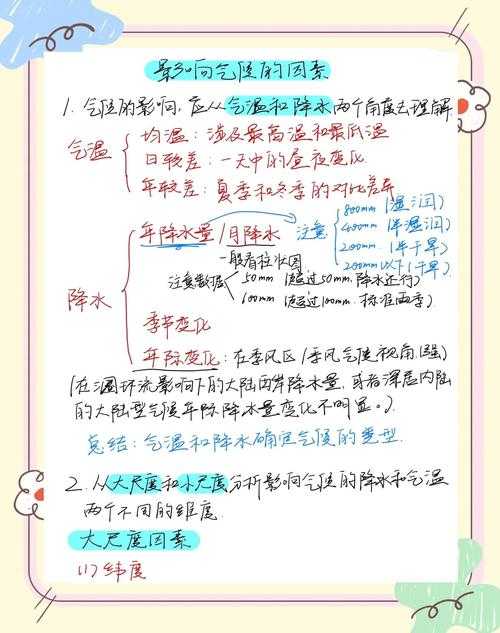 影响气候的因素
1. 气候的影响,应从气温和降水两个角度去理解
气温
均温:涉及最高温和最低温
日较差:一天中的昼夜变化
年较差:夏季和冬季的对比差异
降水
年降水量/月降水
注意
800mm (湿润)
400mm (半湿润)
200mm (半干旱)
200mm以下(干旱)
一般看柱状图
注意数据
50mm (超过50mm,降水还行)
100mm (超过100mm,标准雨季)
季节变化
年际变化:在季风区(季风气候视角,强)
(在洄环流影响下的大陆两岸降水量,或者深居内陆
的大陆型气候年际降水量变化不明显。)
总结:气温和降水确定气候的类型.
2. 从大尺度和小尺度分析影响气候的降水和气温
两个不同的维度.
大尺度因素
(1)纬度